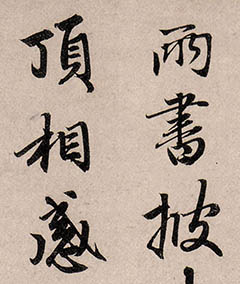 兩書披
頂相感